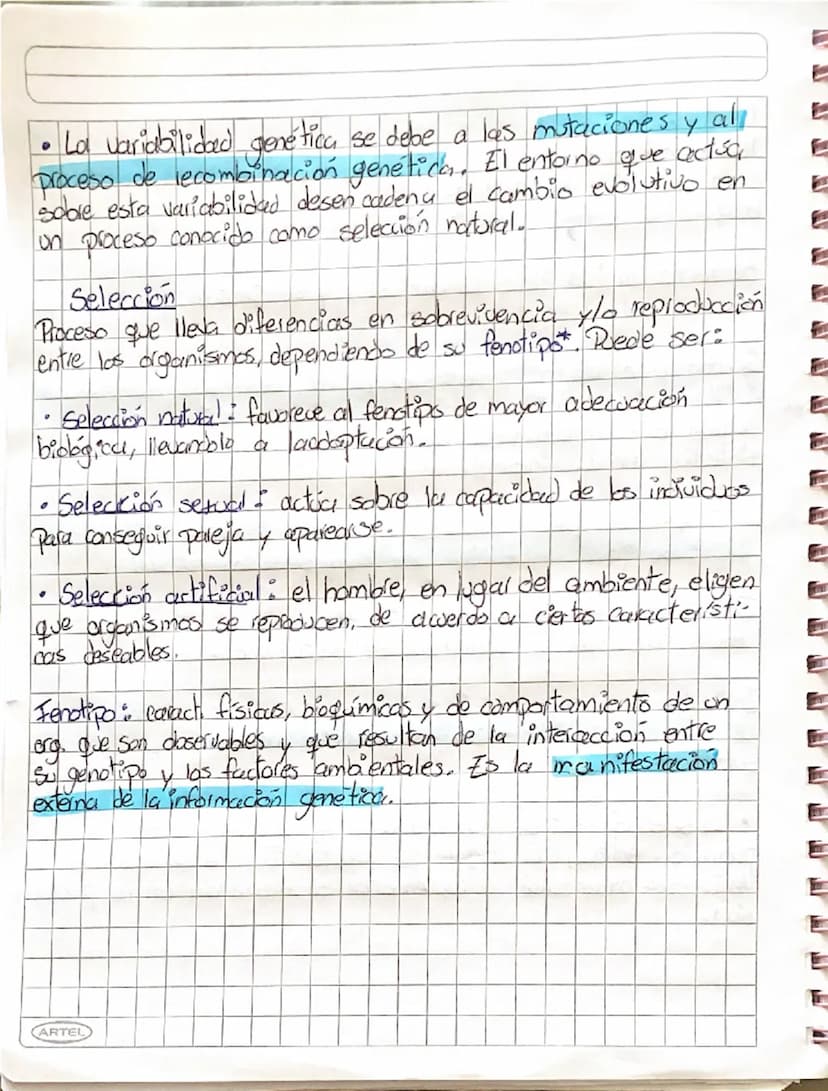 • La variabilidad genética se debe a las mutaciones y al
proceso de recombinación genética. El entorno que actúa
sobre esta variabilidad desencadena el cambio evolutivo en
un proceso conocido como selección natural.
Selección
Proceso que lleva diferencias en sobrevivencia y/o reproducción
entre los organismos, dependiendo de su fenotipo*. Puede ser:
• Selección natural: favorece al fenotipo de mayor adecuación
biológica, llevandolo a la adaptación.
• Selección sexual: actúa sobre la capacidad de los individuos
para conseguir pareja y aparearse.
• Selección artificial: el hombre, en lugar del ambiente, eligen
que organismos se reproducen, de acuerdo a ciertas característi-
cas deseables.
Fenotipo: caract. físicas, bioquímicas y de comportamiento de un
org. que son observables y que resultan de la interacción entre
su genotipo y los factores ambientales. Es la manifestación
externa de la información genética.
ARTEL